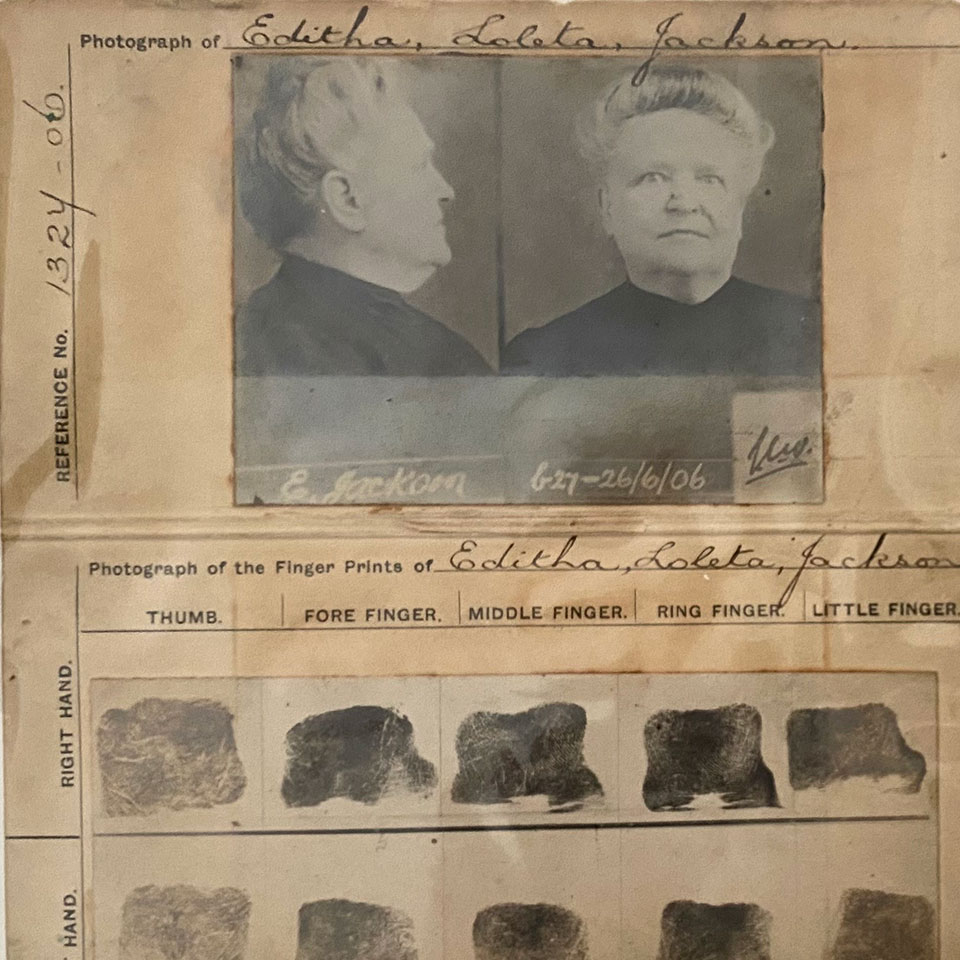 Photograph of Editha, Loleta, Jackson.
REFERENCE No. 1324-06.
E. Jackson 627-26/6/06
Photograph of the Finger Prints of Editha, Loleta, Jackson
THUMB. FORE FINGER. MIDDLE FINGER. RING FINGER. LITTLE FINGER.
RIGHT HAND.
HAND.